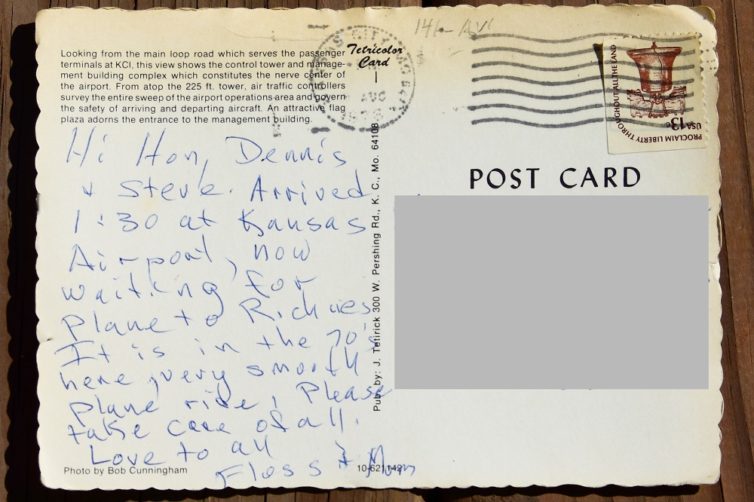 Looking from the main loop road which serves the passenger
terminals at KCI, this view shows the control tower and manage-
ment building complex which constitutes the nerve center of
the airport. From atop the 225 ft. tower, air traffic controllers
survey the entire sweep of the airport operations area and govern
the safety of arriving and departing aircraft. An attractive flag
plaza adorns the entrance to the management building.
Hi Hon, Dennis
+ Steve. Arrived
1:30 at Kansas
Airport, now
waiting for
plane to
It is in the 70's
here, very smooth
plane ride, Please
take care of all.
Love to all
Floss + Mom
Photo by Bob Cunningham
Tetricolor
Card
Pub. by: J. Tetirick 300 W. Pershing Rd., K. C., Mo. 64108
AUG
POST CARD
PROCLAIM LIBERTY THROUGHOUT ALL THE LAND
USA 13c